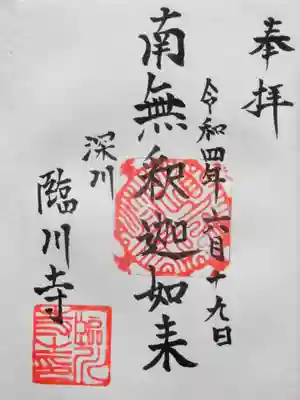 奉拝
令和四年六月十九日
南無釈迦如来
深川
臨川寺